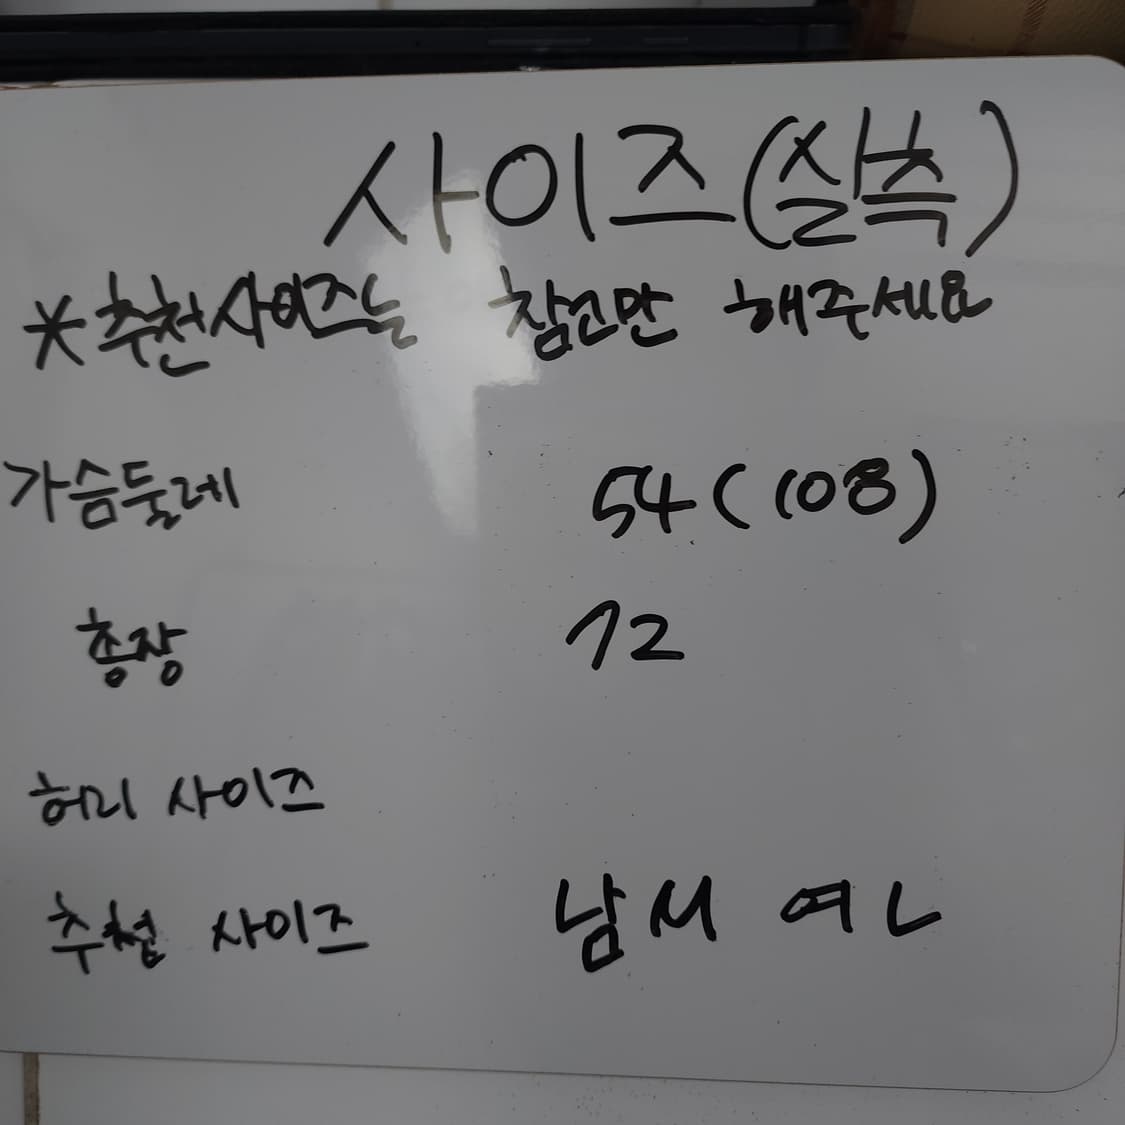 사이즈(실측)
*추천사이즈는 참고만 해주세요
가슴둘레 54(108)
총장 72
허리 사이즈
추천 사이즈 남 M 여 L